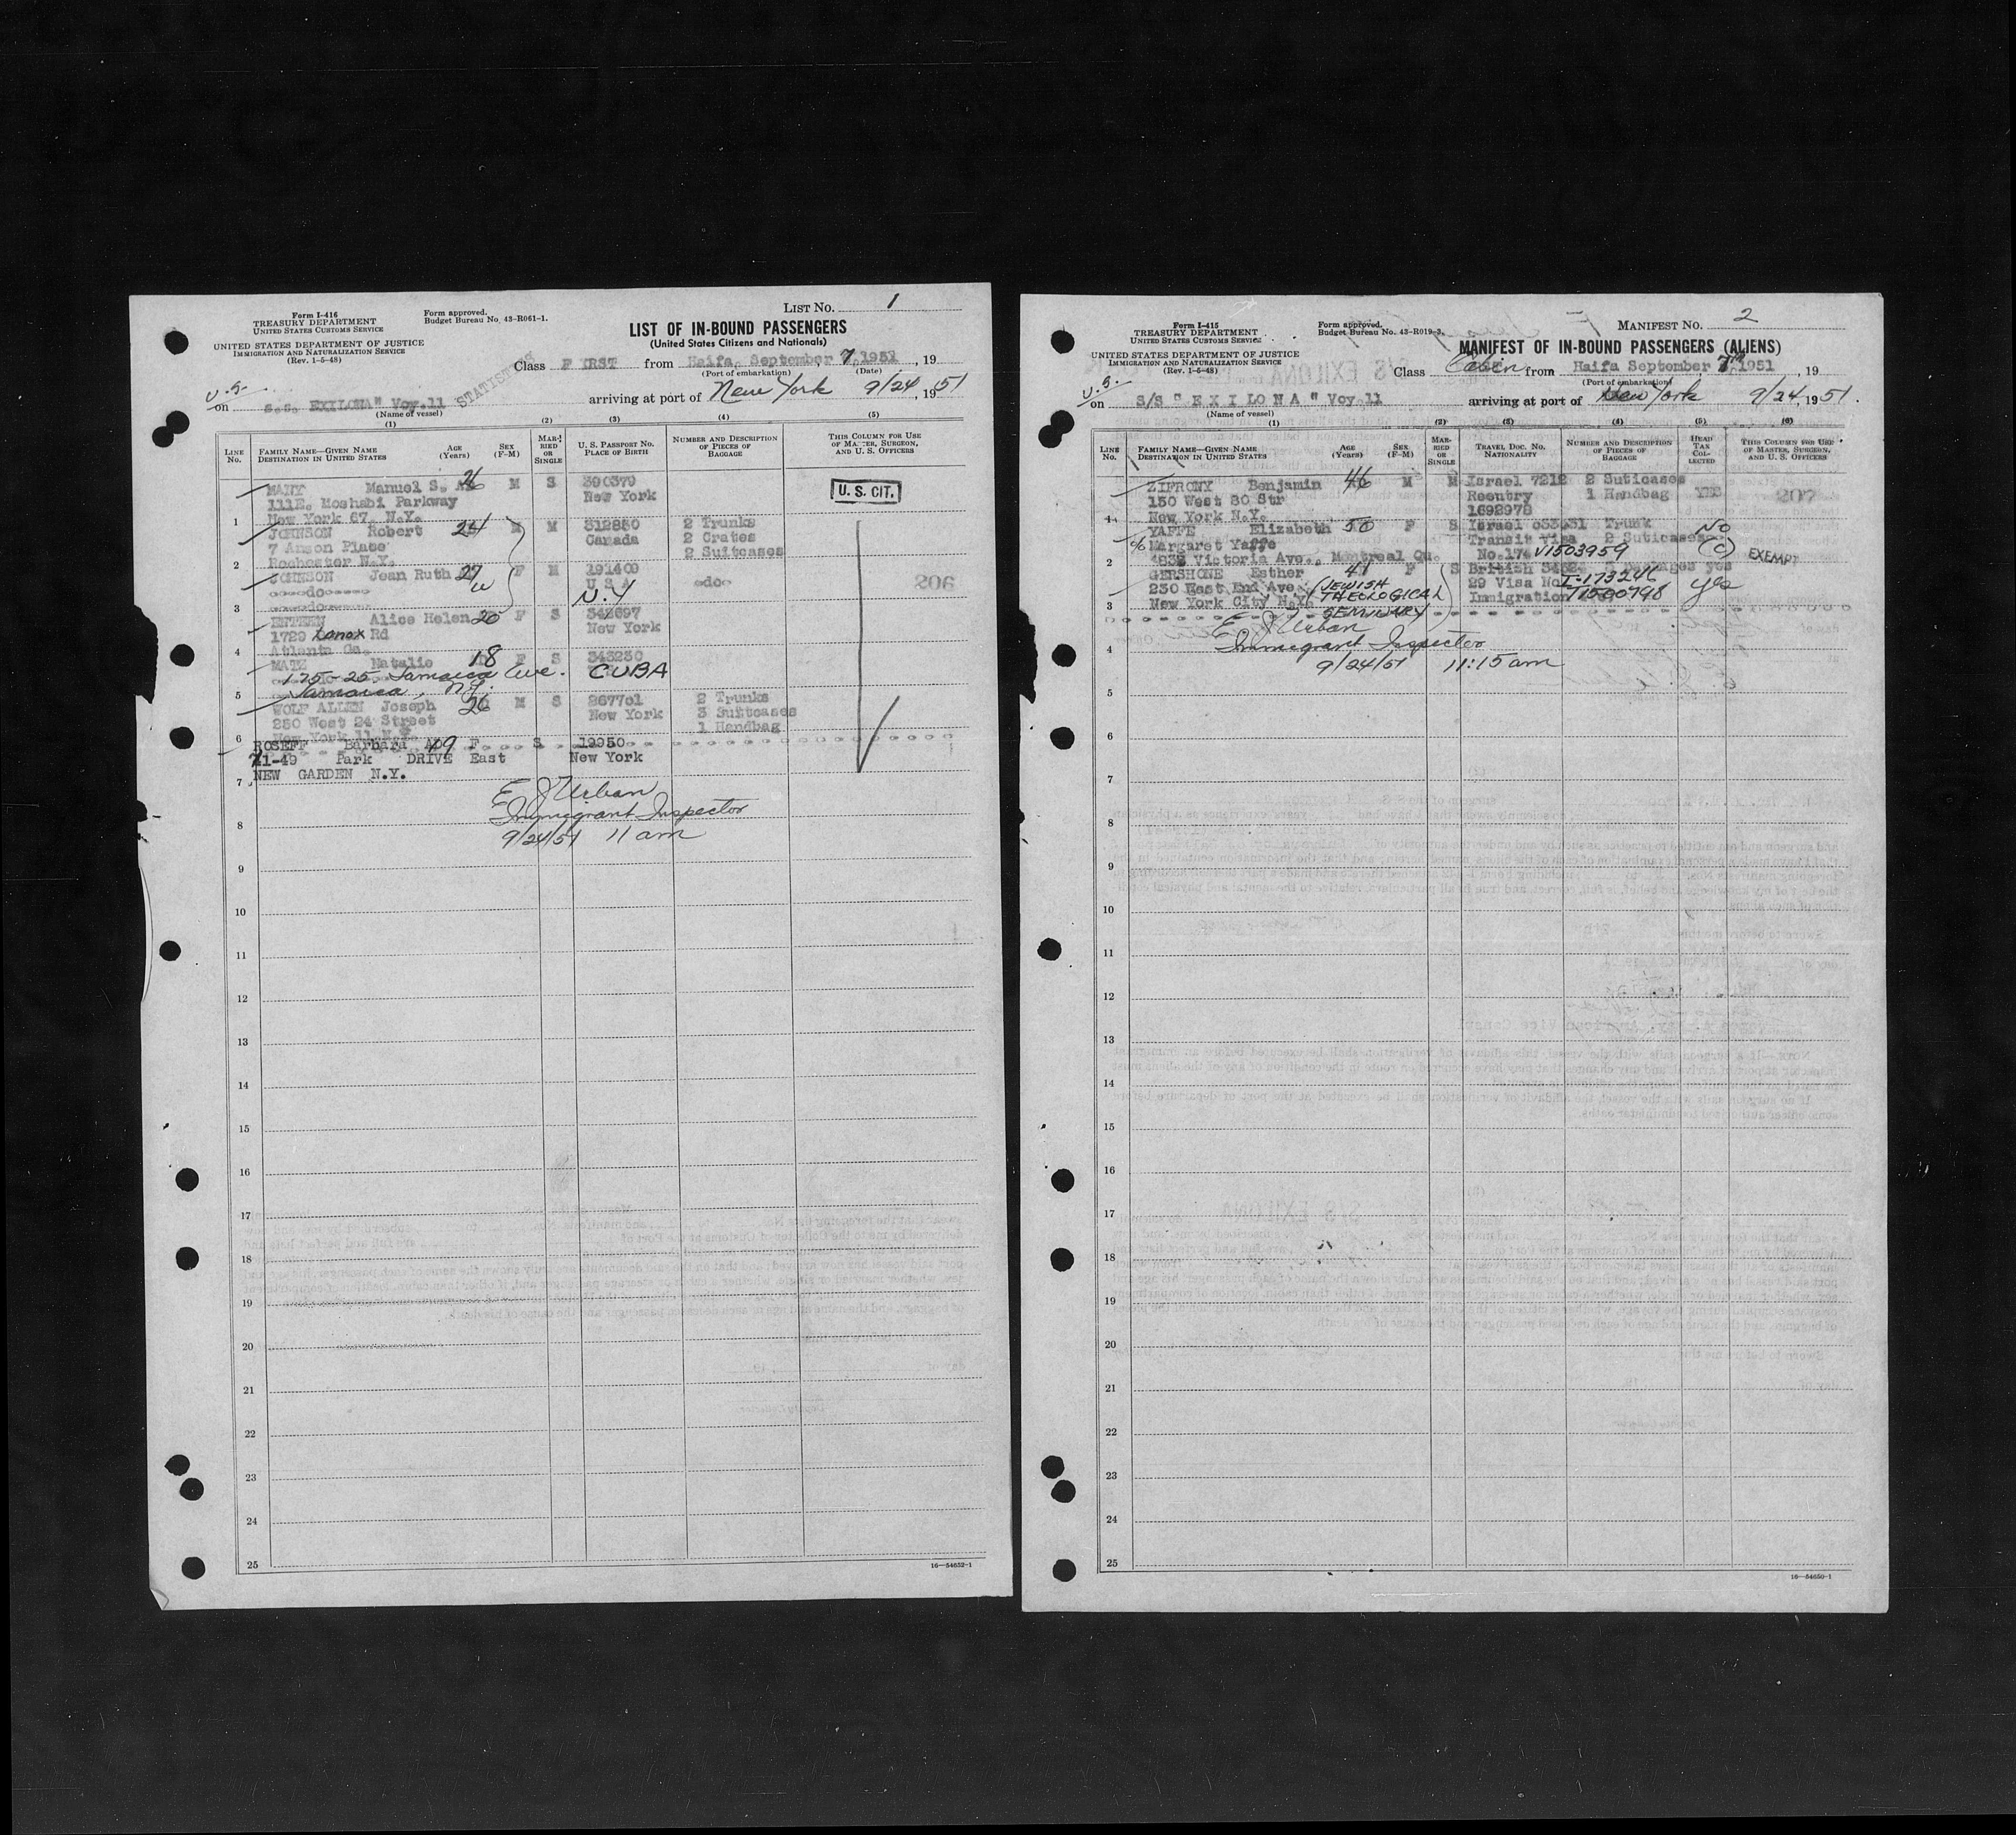 Form I-416
TREASURY DEPARTMENT
UNITED STATES CUSTOMS SERVICE
UNITED STATES DEPARTMENT OF JUSTICE
IMMIGRATION AND NATURALIZATION SERVICE
(Rev. 1-5-48)
Form approved.
Budget Bureau No. 43-R061-1.
LIST No. 1
LIST OF IN-BOUND PASSENGERS
(United States Citizens and Nationals)
Class FIRST from Haifa, September 7, 1951, 19
(Port of embarkation) (Date)
U.S.
on S.S. EXILONA" Voy.11 arriving at port of New York 9/24, 1951
(Name of vessel)
(1) (2) (3) (4) (5)
LINE No.
FAMILY NAME—GIVEN NAME
DESTINATION IN UNITED STATES
AGE (Years)
SEX (F-M)
MARRIED OR SINGLE
U. S. PASSPORT NO.
PLACE OF BIRTH
NUMBER AND DESCRIPTION OF PIECES OF BAGGAGE
THIS COLUMN FOR USE OF MASTER, SURGEON, AND U. S. OFFICERS
MANY Manuel S. 26 M S 390379
111E. Moshabi Parkway New York
U. S. CIT.
1 New York 67. N.Y.
JOHNSON Robert 24 M M 312850 2 Trunks
7 Anson Place Canada 2 Crates
2 Rochester N.Y. 2 Suitcases
JOHNSON Jean Ruth 27 F M 191409
----do---- U S A -do-
206
3 ----do---- N.Y
ENTEEN Alice Helen 20 F S 343697
1729 Lenox Rd New York
4 Atlanta Ga.
MATZ Natalie 18 F S 343230
175-25 Jamaica Ave. CUBA
5 Jamaica, N.Y.
WOLF ALLEN Joseph 26 M S 267701 2 Trunks
250 West 24 Street New York 3 Suitcases
6 New York 11 N.Y. 1 Handbag
ROSEFF Barbara 49 F S 19950
71-49 Park DRIVE East New York
7 NEW GARDEN N.Y.
E J Urban
8 Immigrant Inspector
9/24/51 11 am
9
10
11
12
13
14
15
16
17
18
19
20
21
22
23
24
25
16—54652-1
Form I-415
TREASURY DEPARTMENT
UNITED STATES CUSTOMS SERVICE
UNITED STATES DEPARTMENT OF JUSTICE
IMMIGRATION AND NATURALIZATION SERVICE
(Rev. 1-5-48)
Form approved.
Budget Bureau No. 43-R019-3.
MANIFEST No. 2
MANIFEST OF IN-BOUND PASSENGERS (ALIENS)
Class Cabin from Haifa September 7th 1951, 19
(Port of embarkation)
U.S.
on S/S " E X I L O N A " Voy 11 arriving at port of New York 9/24, 1951.
(Name of vessel)
(1) (2) (3) (4) (5) (6)
LINE No.
FAMILY NAME—GIVEN NAME
DESTINATION IN UNITED STATES
AGE (Years)
SEX (F-M)
MARRIED OR SINGLE
TRAVEL DOC. NO.
NATIONALITY
NUMBER AND DESCRIPTION OF PIECES OF BAGGAGE
HEAD TAX COLLECTED
THIS COLUMN FOR USE OF MASTER, SURGEON, AND U. S. OFFICERS
ZIFRONY Benjamin 46 M M Israel 7212 2 Suticases
150 West 80 Str Reentry 1 Handbag YES 207
1 New York N.Y. 1692978
YAFFE Elizabeth 50 F S Israel Trunk No
c/o Margaret Yaffe Transit Visa 2 Suticases (C) EXEMPT
2 4832 Victoria Ave., Montreal Qu. No.174 V1503959
GERSHONE Esther 41 F S British yes
230 East End Ave. (JEWISH 29 Visa No I-173246 yes
3 New York City N.Y. THEOLOGICAL Immigration
SEMINARY)
E J Urban
4 Immigrant Inspector
9/24/51 11:15 am
5
6
7
8
9
10
11
12
13
14
15
16
17
18
19
20
21
22
23
24
25
16—54650-1